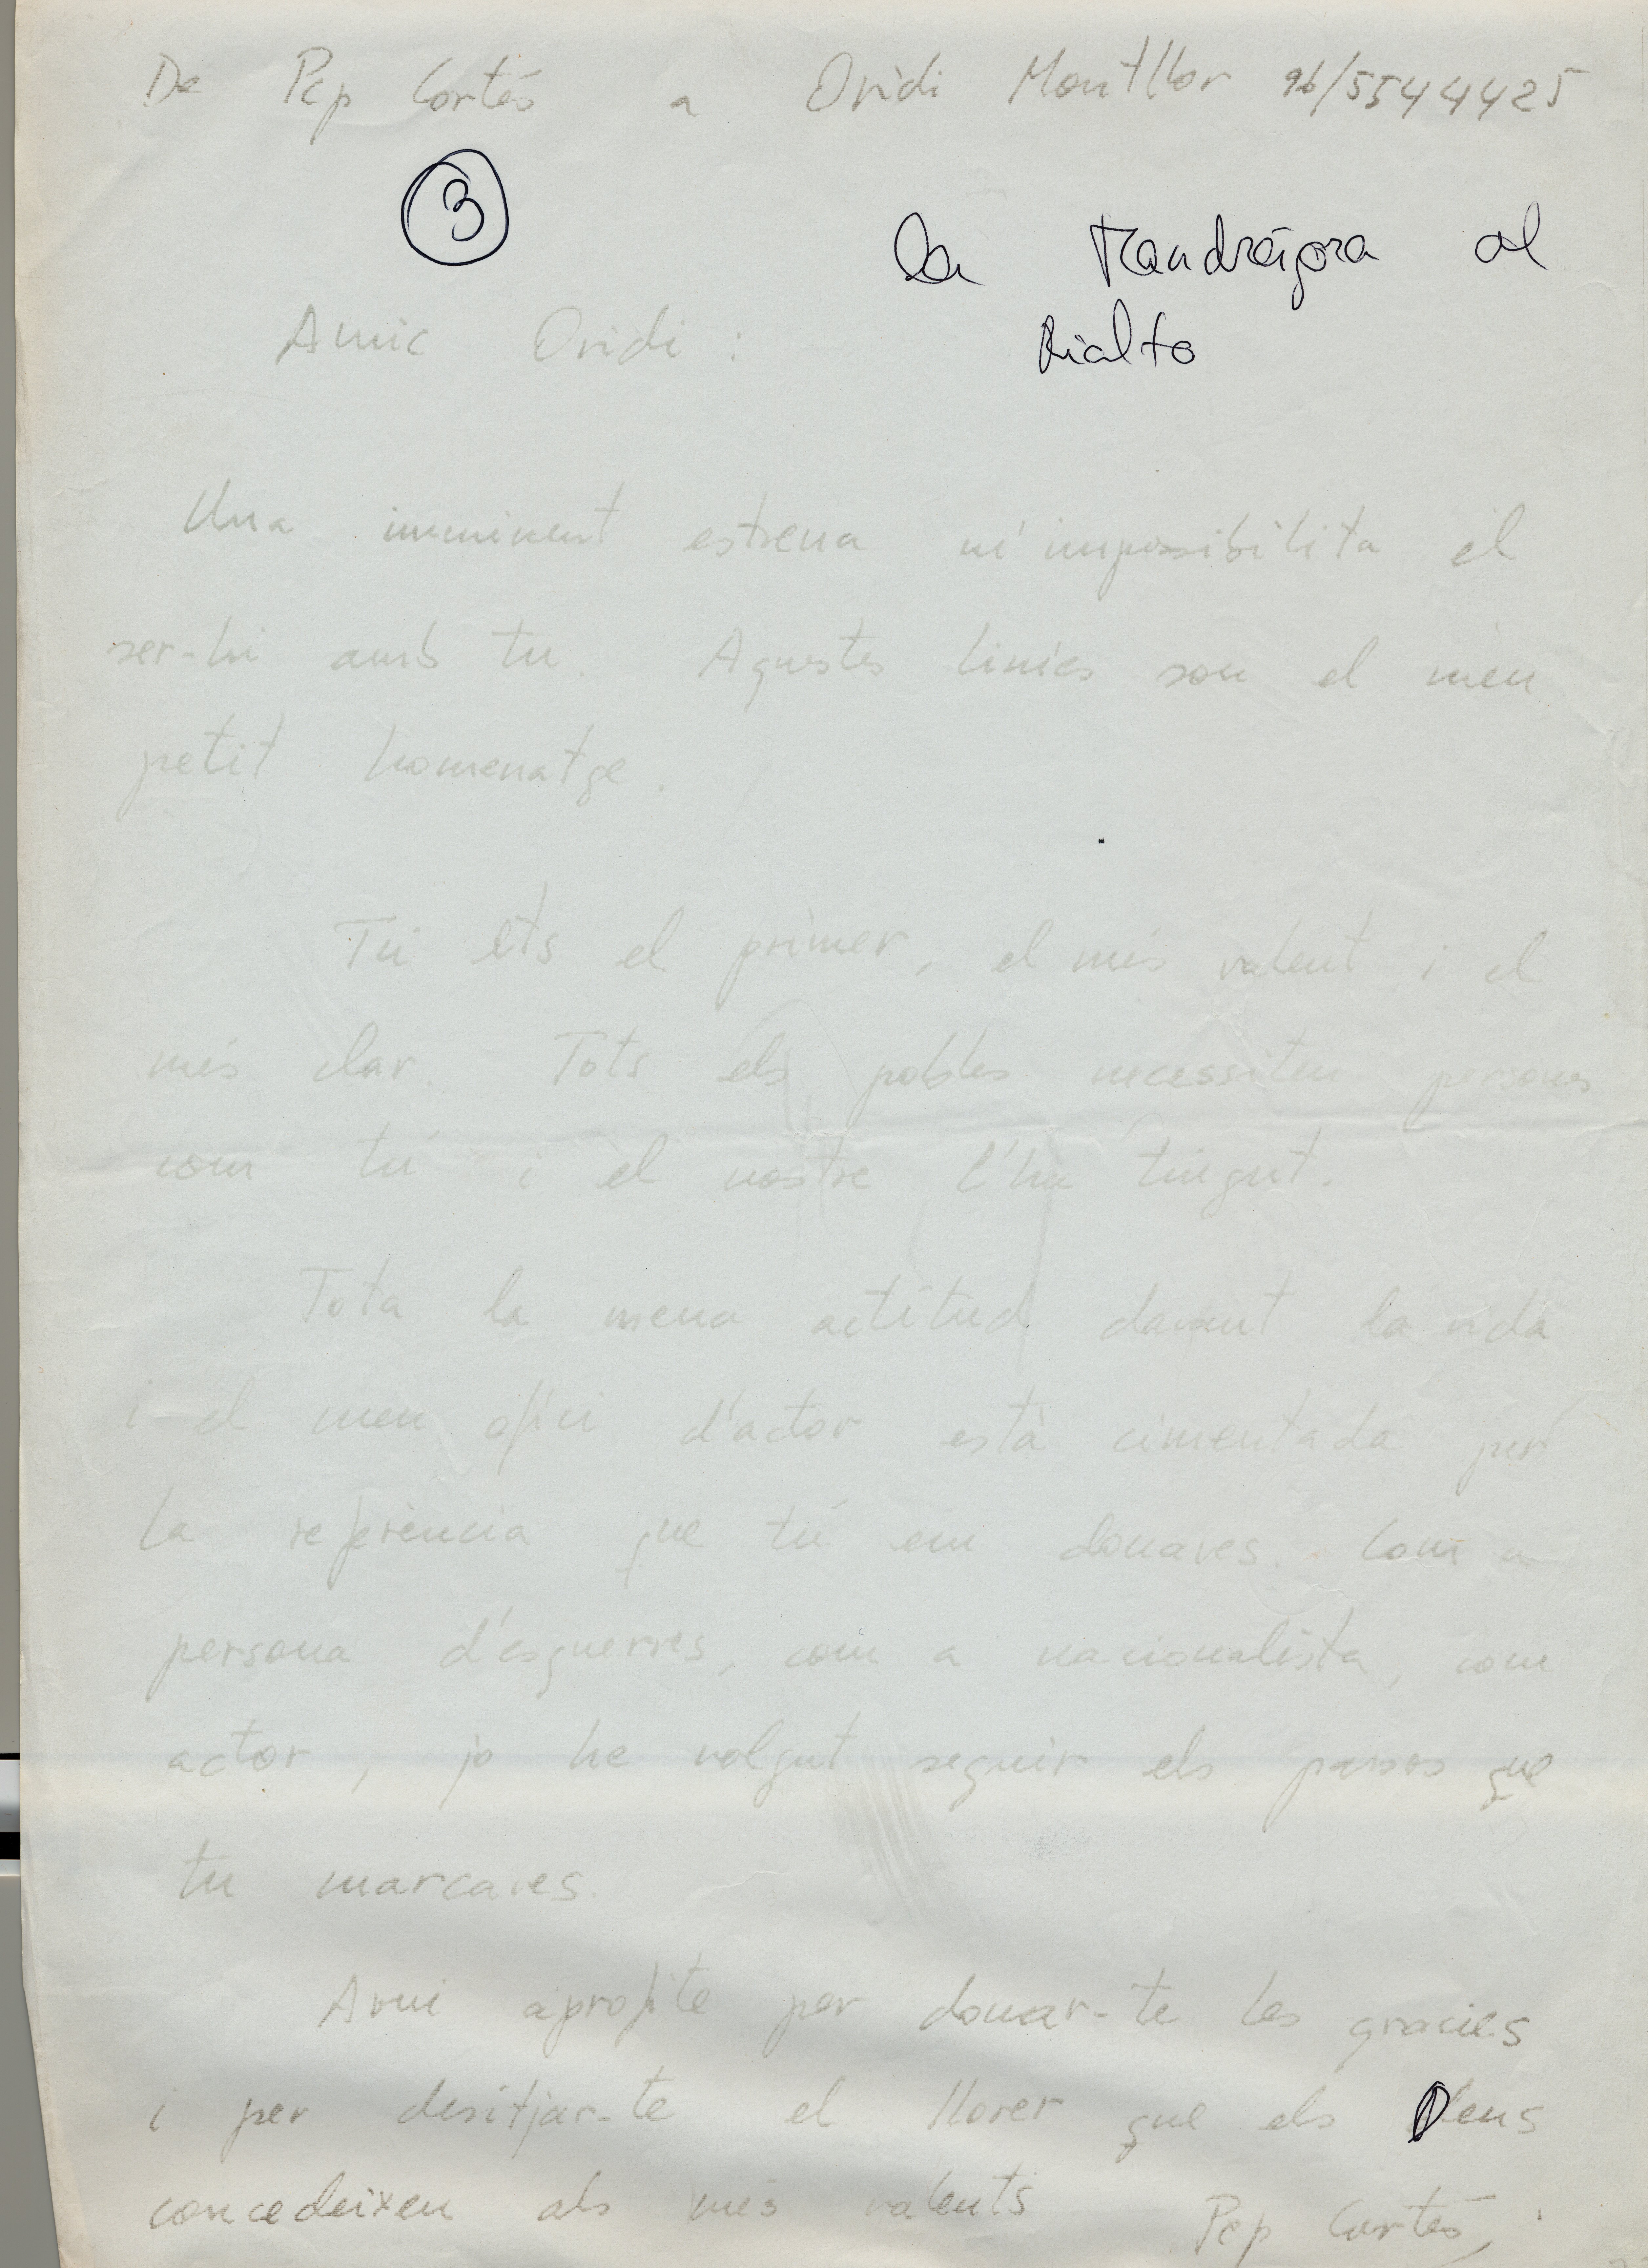 De Pep Cortés a Ovidi Montllor 96/5544425
3
La Mandrágora al
Rialto
Amic Ovidi :
Una imminent estrena m'impossibilita el
ser-hi amb tu. Aquestes línies son el meu
petit homenatge.
Tú ets el primer, el més valent i el
més clar. Tots els pobles necessiten persones
com tú i el nostre l'ha tingut.
Tota la meua actitud davant la vida
i el meu ofici d'actor está cimentada per
la referència que tú em donares. Com a
persona d'esquerres, com a nacionalista, com
actor, jo he volgut seguir els passos que
tu marcaves.
Avui aprofite per donar-te les gracies
i per desitjar-te el llorer que els Deus
concedeixen als més valents
Pep Cortés